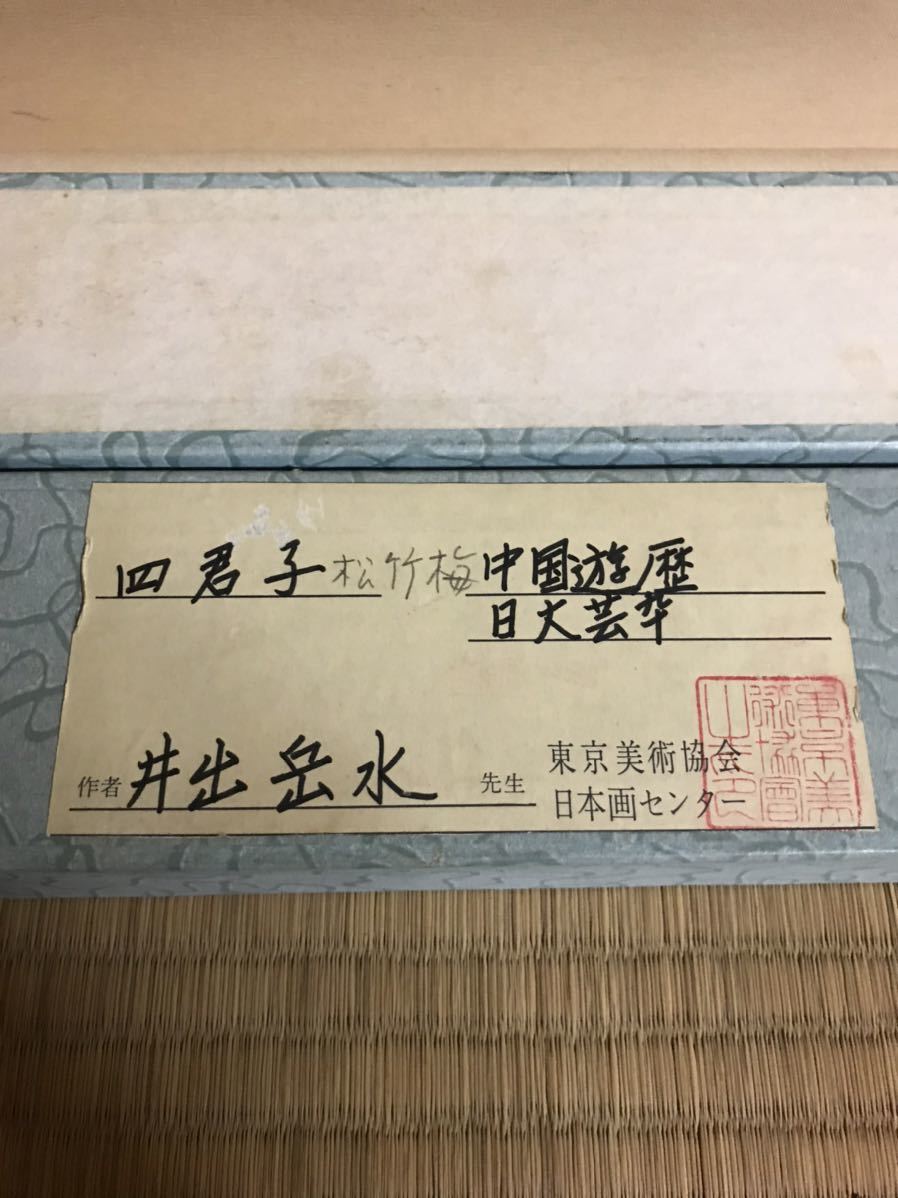 四君子 松竹梅 中国遊歴
日大芸卒
作者 井出岳水 先生
東京美術協会
日本画センター